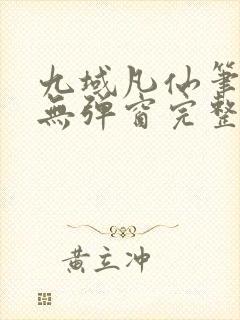 九域凡仙筆
無彈窗完整
黃立沖